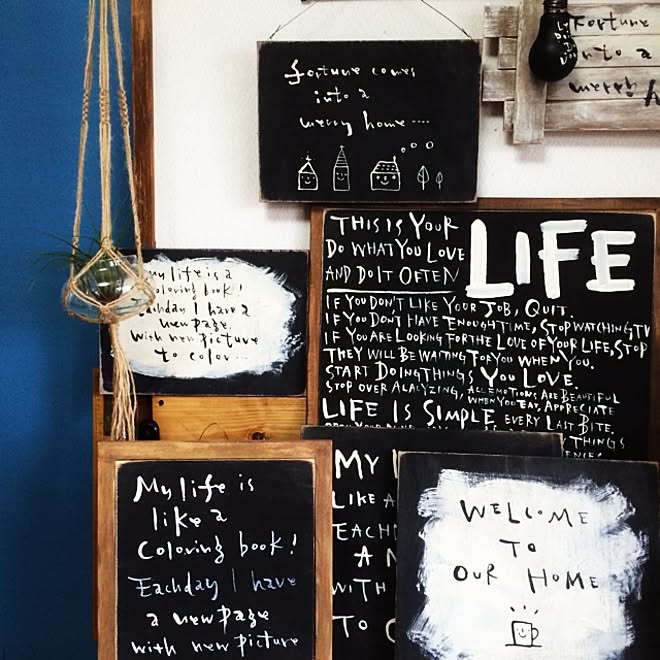 fortune comes
into a
merry home....
Fortune
into a
merry h
THIS IS YOUR LIFE
DO WHAT YOU LOVE
AND DO IT OFTEN
IF YOU DON'T LIKE YOUR JOB, QUIT.
IF YOU DON'T HAVE ENOUGH TIME, STOP WATCHING TV
IF YOU ARE LOOKING FOR THE LOVE OF YOUR LIFE, STOP
THEY WILL BE WAITING FOR YOU WHEN YOU.
START DOING THINGS YOU LOVE.
STOP OVER ALALYZING, ALL EMOTIONS ARE BEAUTIFUL
WHEN YOU EAT, APPRECIATE
LIFE IS SIMPLE EVERY LAST BITE.
THINGS
my life is a
coloring book!
Eachday I have a
new page.
with new picture
to color...
My life is
like a
coloring book!
Eachday I have
a new page
with new picture
MY
LIKE A
EACH
A N
WITH
TO C
WELCOME
TO
OUR HOME